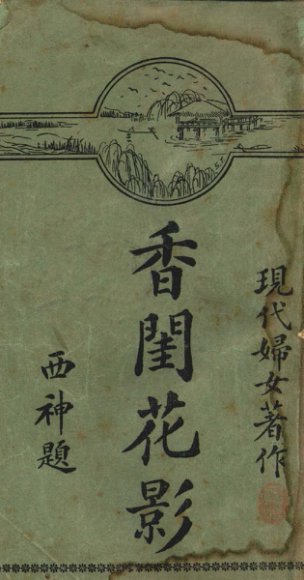 現代婦女著作
香閨花影
西神題